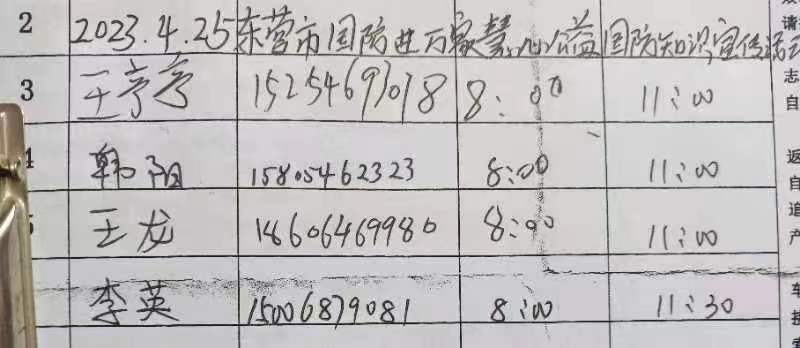 2 2023.4.25东营市国防进万家慧心公益国防知识宣传活动
3 王亭亭 15254693018 8:00 11:00
4 韩阳 15805462323 8:00 11:00
5 王龙 18606469980 8:00 11:00
李英 15006879081 8:00 11:30
请
志
自
返
自
追
产
车